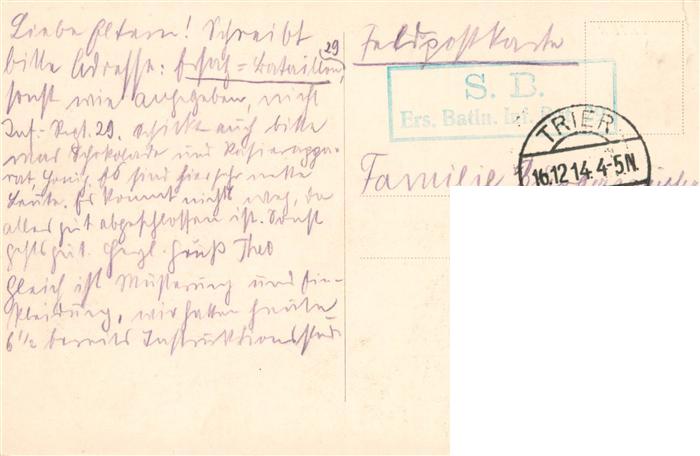 Liebe Eltern! Schreibt
bitte Adresse: Ersatz=Bataillon,
29
sonst wie angegeben, nicht
Inf.-Regt. 29. Schickt auch bitte
was Schokolade und Rasierappa-
rat Honig. Es sind hier sehr nette
Leute. Es kommt nichts weg, da
alles gut abgeschlossen ist. Sonst
geht's gut. Herzl. Gruß Theo
Gleich ist Musterung und Ein-
kleidung, wir hatten heute
6 1/2 bereits Instruktionsstd.
Feldpostkarte
S. B.
Ers. Batln. Inf.
TRIER
16.12.14. 4-5N.
Familie